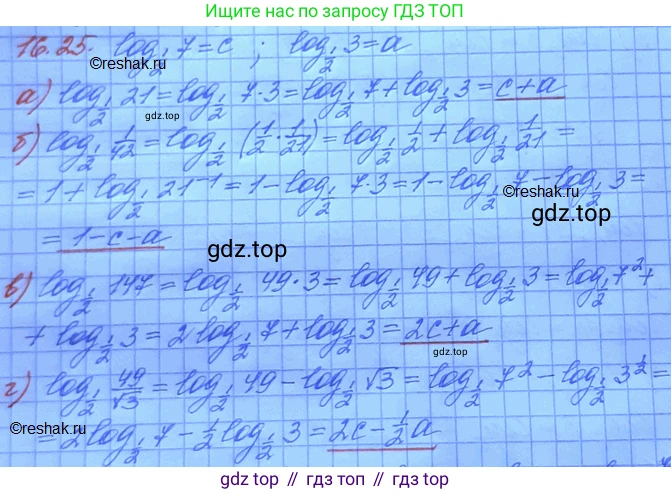 Ищите нас по запросу ГДЗ ТОП
16.25. log_{1/2} 7 = c ; log_{1/2} 3 = a
©reshak.ru
а) log_{1/2} 21 = log_{1/2} 7·3 = log_{1/2} 7 + log_{1/2} 3 = c + a
gdz.top
б) log_{1/2} 1/42 = log_{1/2} (1/2 · 1/21) = log_{1/2} 1/2 + log_{1/2} 1/21 =
= 1 + log_{1/2} 21^{-1} = 1 - log_{1/2} 7·3 = 1 - log_{1/2} 7 - log_{1/2} 3 =
©reshak.ru
gdz.top
= 1 - c - a
gdz.top
в) log_{1/2} 147 = log_{1/2} 49·3 = log_{1/2} 49 + log_{1/2} 3 = log_{1/2} 7² +
+ log_{1/2} 3 = 2 log_{1/2} 7 + log_{1/2} 3 = 2c + a
gdz.top
г) log_{1/2} 49/√3 = log_{1/2} 49 - log_{1/2} √3 = log_{1/2} 7² - log_{1/2} 3^{1/2} =
©reshak.ru
= 2 log_{1/2} 7 - 1/2 log_{1/2} 3 = 2c - 1/2 a
gdz top // гдз топ // gdz.top